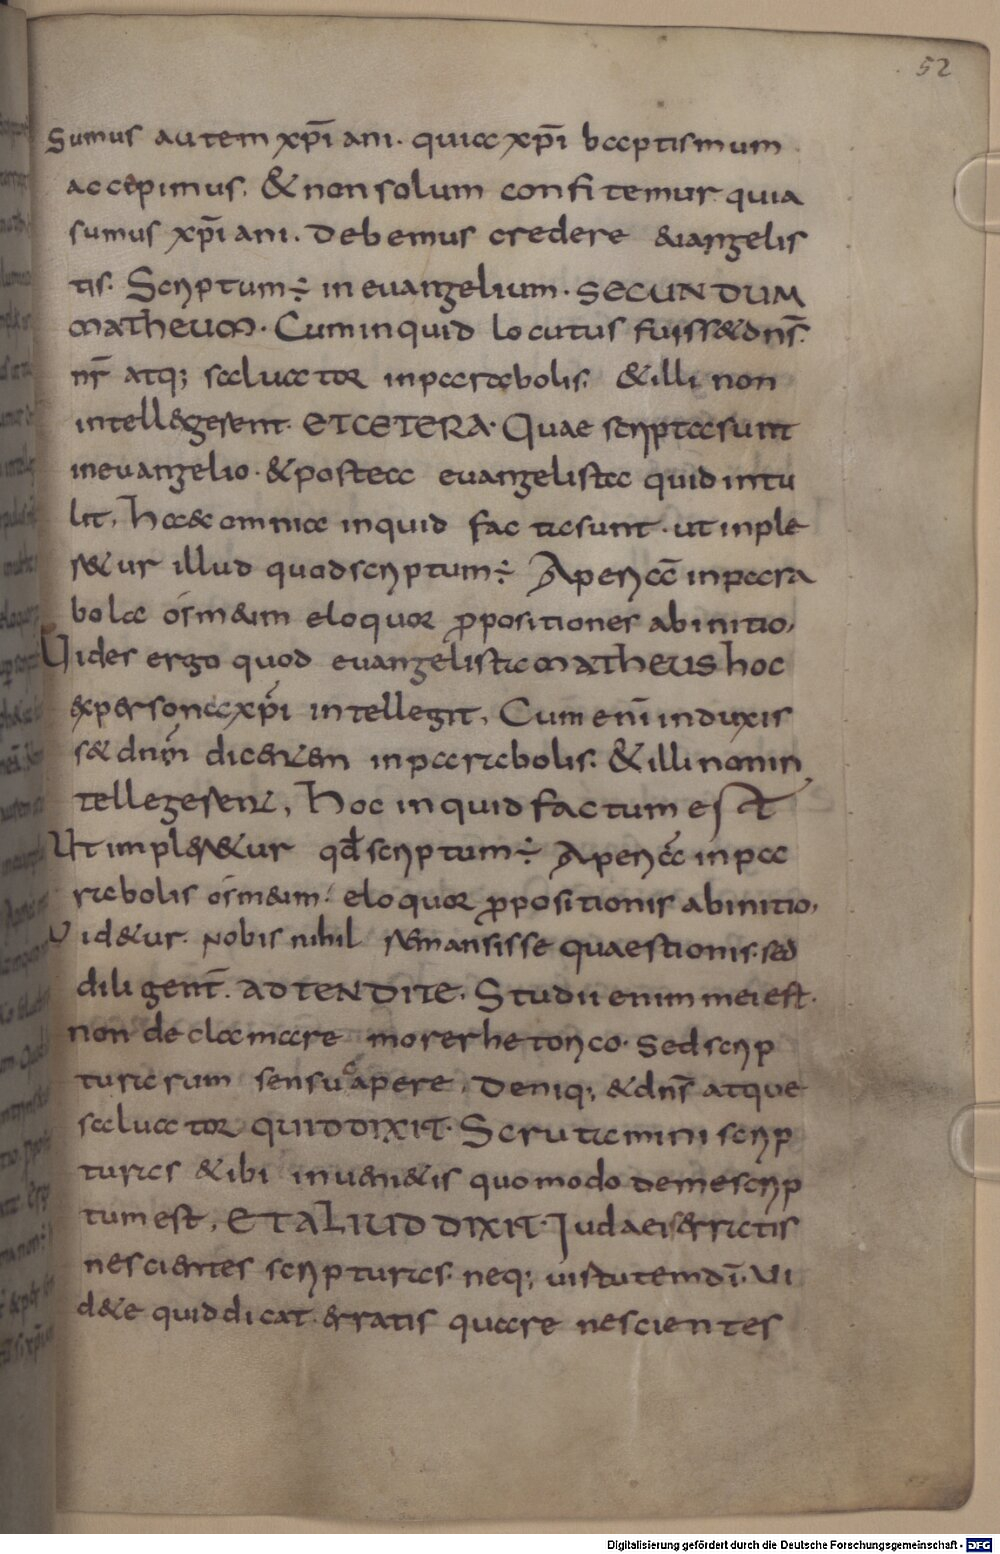 52
Sumus autem xp̄i ani. quia xp̄i baptismum
accepimus. & non solum confitemur quia
sumus xp̄i ani. Debemus credere euangelis
tis. Scriptum ÷ in euangelium. SECUNDUM
MATHEUM. Cum inquid locutus fuiss& dn̄s
nr̄ atq; saluator in parabolis. & illi non
intellegerent. ET CETERA. Quae scripta sunt
in euangelio. & postea euangelista quid intu
lit, haec omnia inquid facta sunt. ut inple
r&ur illud quod scriptum ÷ Aperiā in para
bola ós m&im eloquor ꝓpositiones ab initio,
Uides ergo quod euangelista matheus hoc
ex persona xp̄i intellegit, Cum enī induxis
s& dnm̄ dicentem in parabolis. & illi non in
tellegerent, hoc inquid factum est
Ut impler&ur qđ scriptum ÷ Aperiā in pa
rabolis ós m&im. eloquor ꝓpositionis ab initio,
Uid&ur nobis nihil remansisse quaestionis. sed
diligent̄. ADTENDITE. Studii enim mei est.
non declamare more rhetorico. Sed scrip
turarum sensū apere. Deniq; & dn̄s atque
saluator QUID DIXIT. Scrutamini scrip
turas & ibi inueni&is quomodo de me scrip
tum est, ET ALIUD DIXIT. Iudaeis erratis
nescientes scripturas. neq; uirtutem dī. Ui
d&e quid dicat. erratis quare nescientes
Digitalisierung gefördert durch die Deutsche Forschungsgemeinschaft - DFG